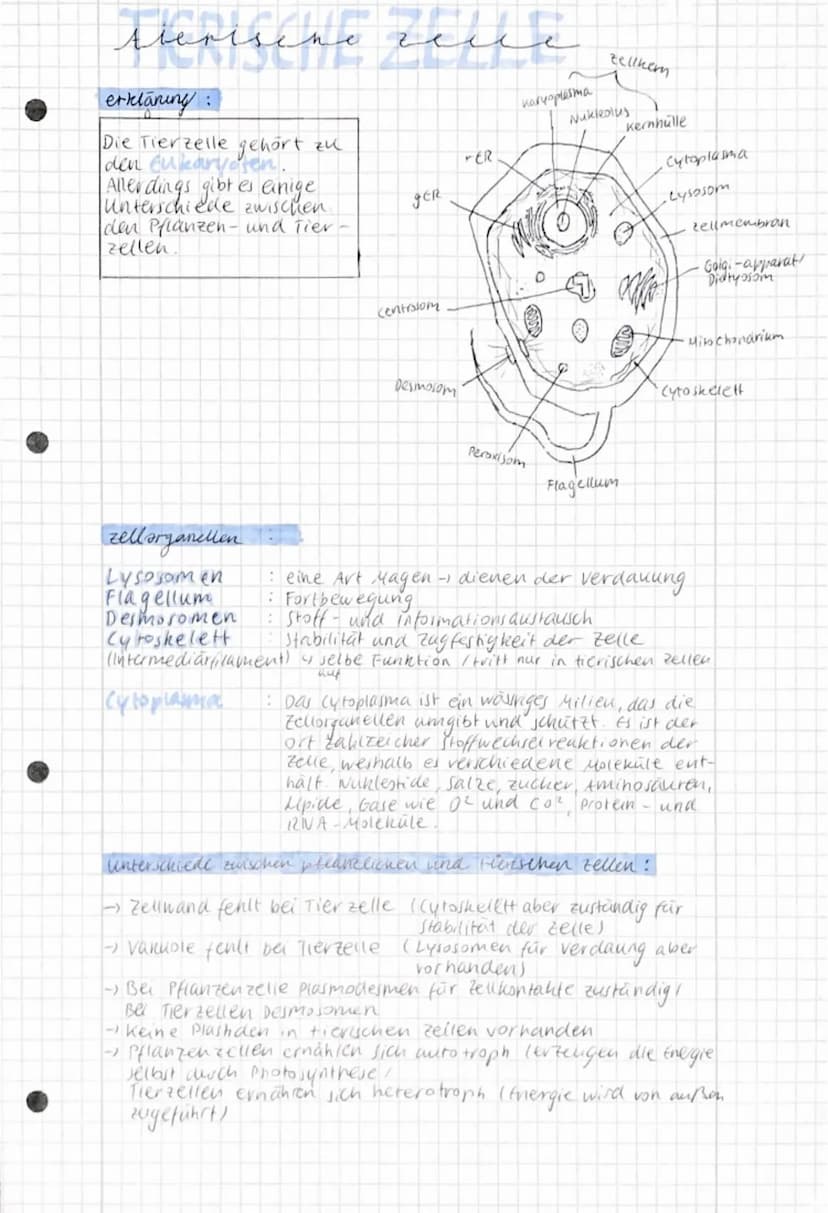 TIERISCHE ZELLE
tierische zelle
erklärung :
Die Tierzelle gehört zu
den Eukaryoten.
Allerdings gibt es einige
Unterschiede zwischen
den Pflanzen- und Tier-
zellen.
zellkern
karyoplasma
Nukleolus
Kernhülle
rER
Cytoplasma
gER
Lysosom
zellmembran
Golgi-apparat/
Dictyosom
centrosom
Mitochondrium
Desmosom
Cytoskelett
Peroxisom
Flagellum
zellorganellen :
Lysosomen : eine Art Magen → dienen der Verdauung
Flagellum : Fortbewegung
Desmosomen : Stoff- und informationsaustausch
Cytoskelett : Stabilität und Zugfestigkeit der Zelle
(Intermediärfilament) ↳ selbe Funktion / tritt nur in tierischen zellen
auf
Cytoplasma : Das Cytoplasma ist ein wässriges Milieu, das die
Zellorganellen umgibt und schützt. Es ist der
Ort zahlreicher Stoffwechselreaktionen der
Zelle, weshalb es verschiedene Moleküle ent-
hält. Nukleotide, Salze, Zucker, Aminosäuren,
Lipide, Gase wie O² und CO², Protein- und
RNA-Moleküle.
unterschiede zwischen pflanzlichen und tierischen zellen :
→ Zellwand fehlt bei Tierzelle (Cytoskelett aber zuständig für
Stabilität der Zelle)
→ Vakuole fehlt bei Tierzelle (Lysosomen für Verdaung aber
vorhanden)
→ Bei Pflanzenzelle Plasmodesmen für Zellkontakte zuständig /
Bei Tierzellen Desmosomen
→ Keine Plastiden in tierischen Zellen vorhanden
→ Pflanzenzellen ernähren sich autotroph (erzeugen die Energie
selbst durch Photosynthese /
Tierzellen ernähren sich heterotroph (Energie wird von außen
zugeführt)